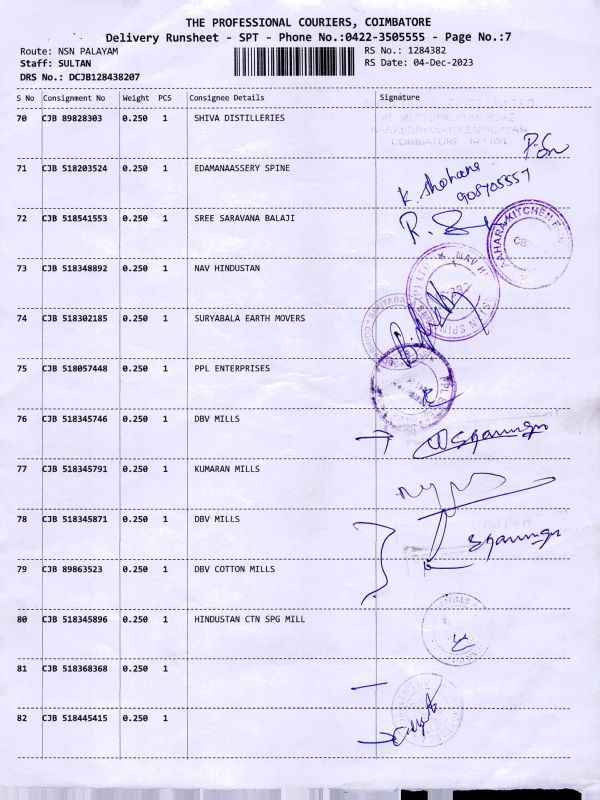 THE PROFESSIONAL COURIERS, COIMBATORE
Delivery Runsheet - SPT - Phone No.:0422-3505555 - Page No.:7
Route: NSN PALAYAM RS No.: 1284382
Staff: SULTAN RS Date: 04-Dec-2023
DRS No.: DCJB128438207
S No Consignment No Weight PCS Consignee Details Signature
70 CJB 89828303 0.250 1 SHIVA DISTILLERIES
METTUPALAYAM ROAD
COIMBATORE
71 CJB 518203524 0.250 1 EDAMANAASSERY SPINE
72 CJB 518541553 0.250 1 SREE SARAVANA BALAJI
AAHARA KITCHEN
73 CJB 518348892 0.250 1 NAV HINDUSTAN
74 CJB 518302185 0.250 1 SURYABALA EARTH MOVERS
75 CJB 518057448 0.250 1 PPL ENTERPRISES
76 CJB 518345746 0.250 1 DBV MILLS
77 CJB 518345791 0.250 1 KUMARAN MILLS
78 CJB 518345871 0.250 1 DBV MILLS
79 CJB 89863523 0.250 1 DBV COTTON MILLS
80 CJB 518345896 0.250 1 HINDUSTAN CTN SPG MILL
81 CJB 518368368 0.250 1
82 CJB 518445415 0.250 1